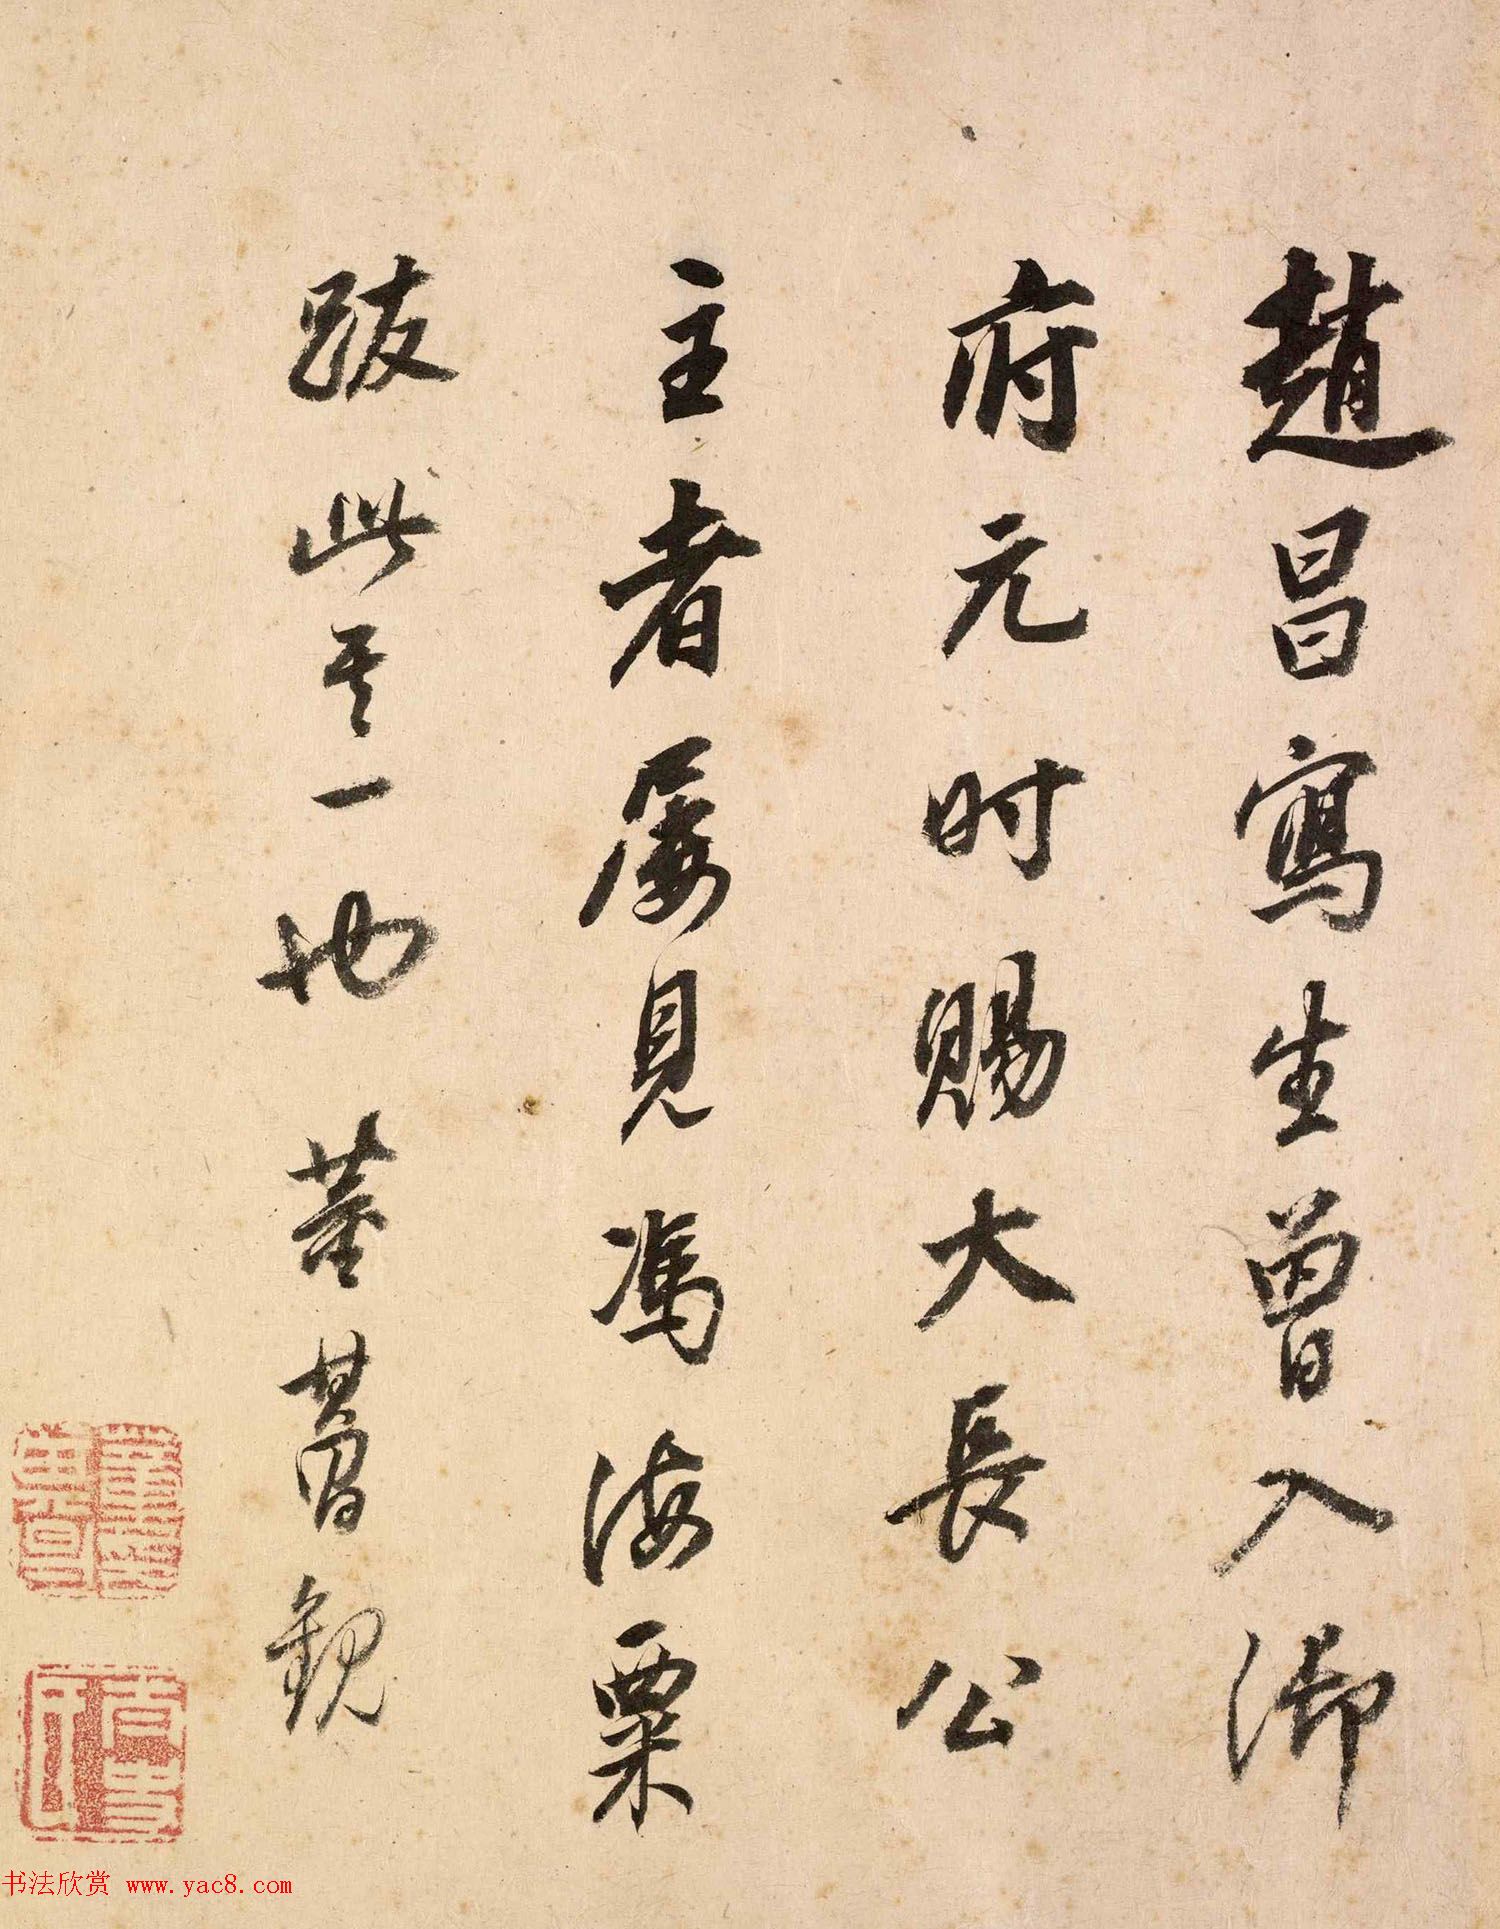 趙昌寫生曾入御
府元时賜大長公
主者屡見馮海粟
跋此其一也 董其昌觀
书法欣赏 www.yac8.com